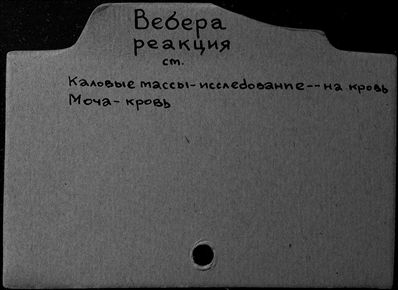 Вебера
реакция
ст.
Каловые массы-исследование--на кровь
Моча-кровь